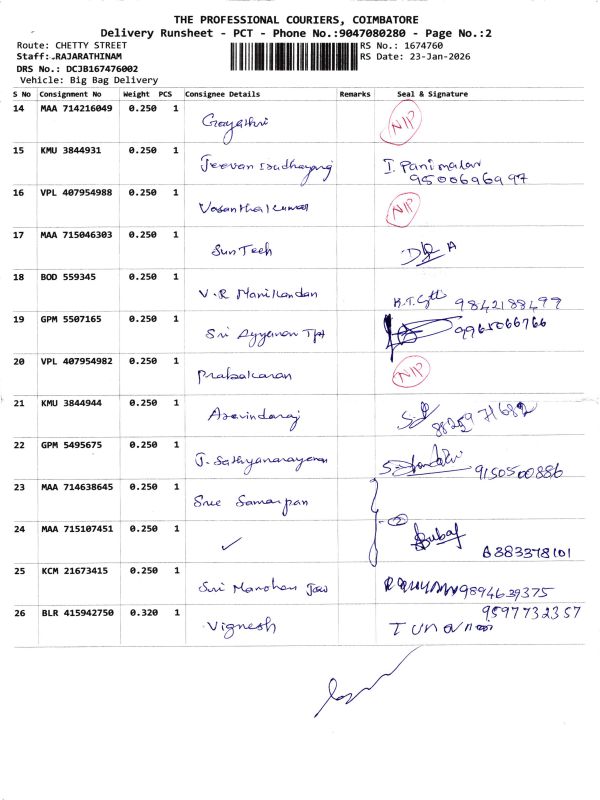 THE PROFESSIONAL COURIERS, COIMBATORE
Delivery Runsheet - PCT - Phone No.:9047080280 - Page No.:2
Route: CHETTY STREET
Staff:.RAJARATHINAM
DRS No.: DCJB167476002
Vehicle: Big Bag Delivery
RS No.: 1674760
RS Date: 23-Jan-2026
S No Consignment No Weight PCS Consignee Details Remarks Seal & Signature
14 MAA 714216049 0.250 1 Gayathri NIP
15 KMU 3844931 0.250 1 Jeevan I. Panimalar
9500696997
16 VPL 407954988 0.250 1 Vasanthakumar NIP
17 MAA 715046303 0.250 1 SunTech
18 BOD 559345 0.250 1 V.R Manikandan 9842188499
19 GPM 5507165 0.250 1 Sri Ayyanar Tpt 9965066766
20 VPL 407954982 0.250 1 Prabakaran NIP
21 KMU 3844944 0.250 1 Aravindaraj 8825971682
22 GPM 5495675 0.250 1 J. Sathyanarayanan 9150500886
23 MAA 714638645 0.250 1 Sree Samarpan
24 MAA 715107451 0.250 1 ✓ 6383378101
25 KCM 21673415 0.250 1 Sri Manohari 9894639375
26 BLR 415942750 0.320 1 Vignesh 9597732357